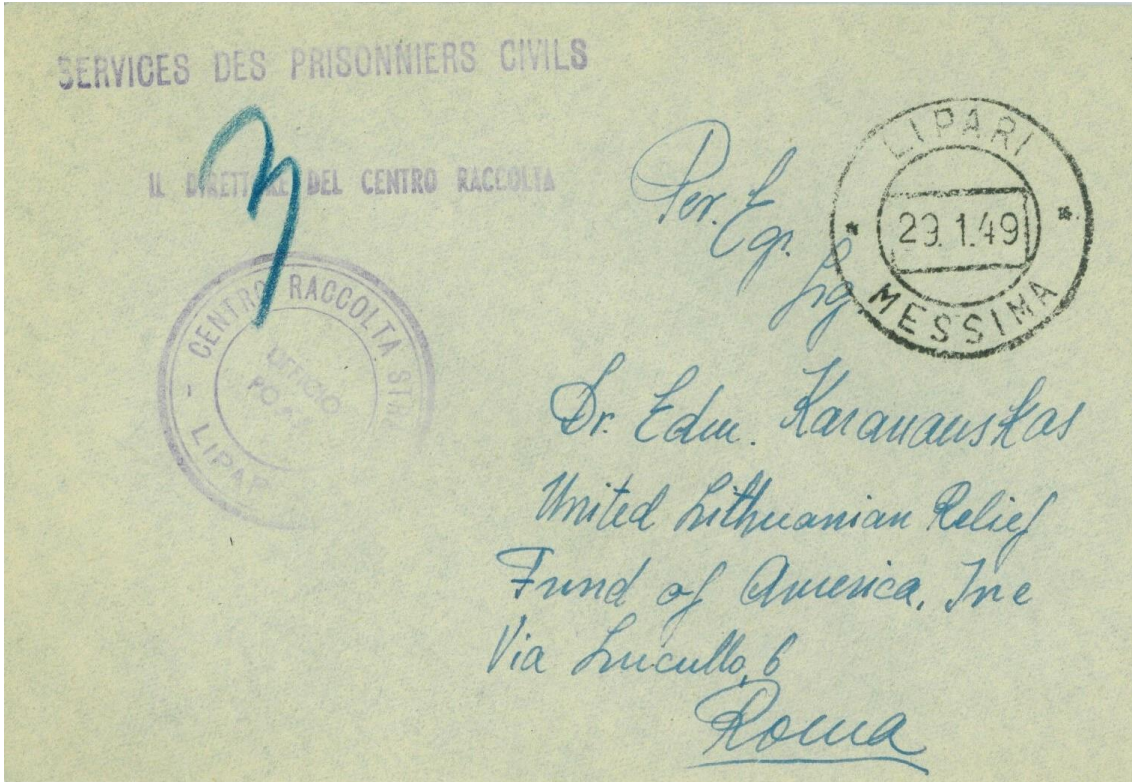 SERVICES DES PRISONNIERS CIVILS
3
IL DIRETTORE DEL CENTRO RACCOLTA
CENTRO RACCOLTA STR
UFFICIO
LIPAR
LIPARI
29.1.49
MESSINA
Per. Egr.
Sig
Dr. Edm. Karanauskas
United Lithuanian Relief
Fund of America, Inc
Via Lucullo, 6
Roma